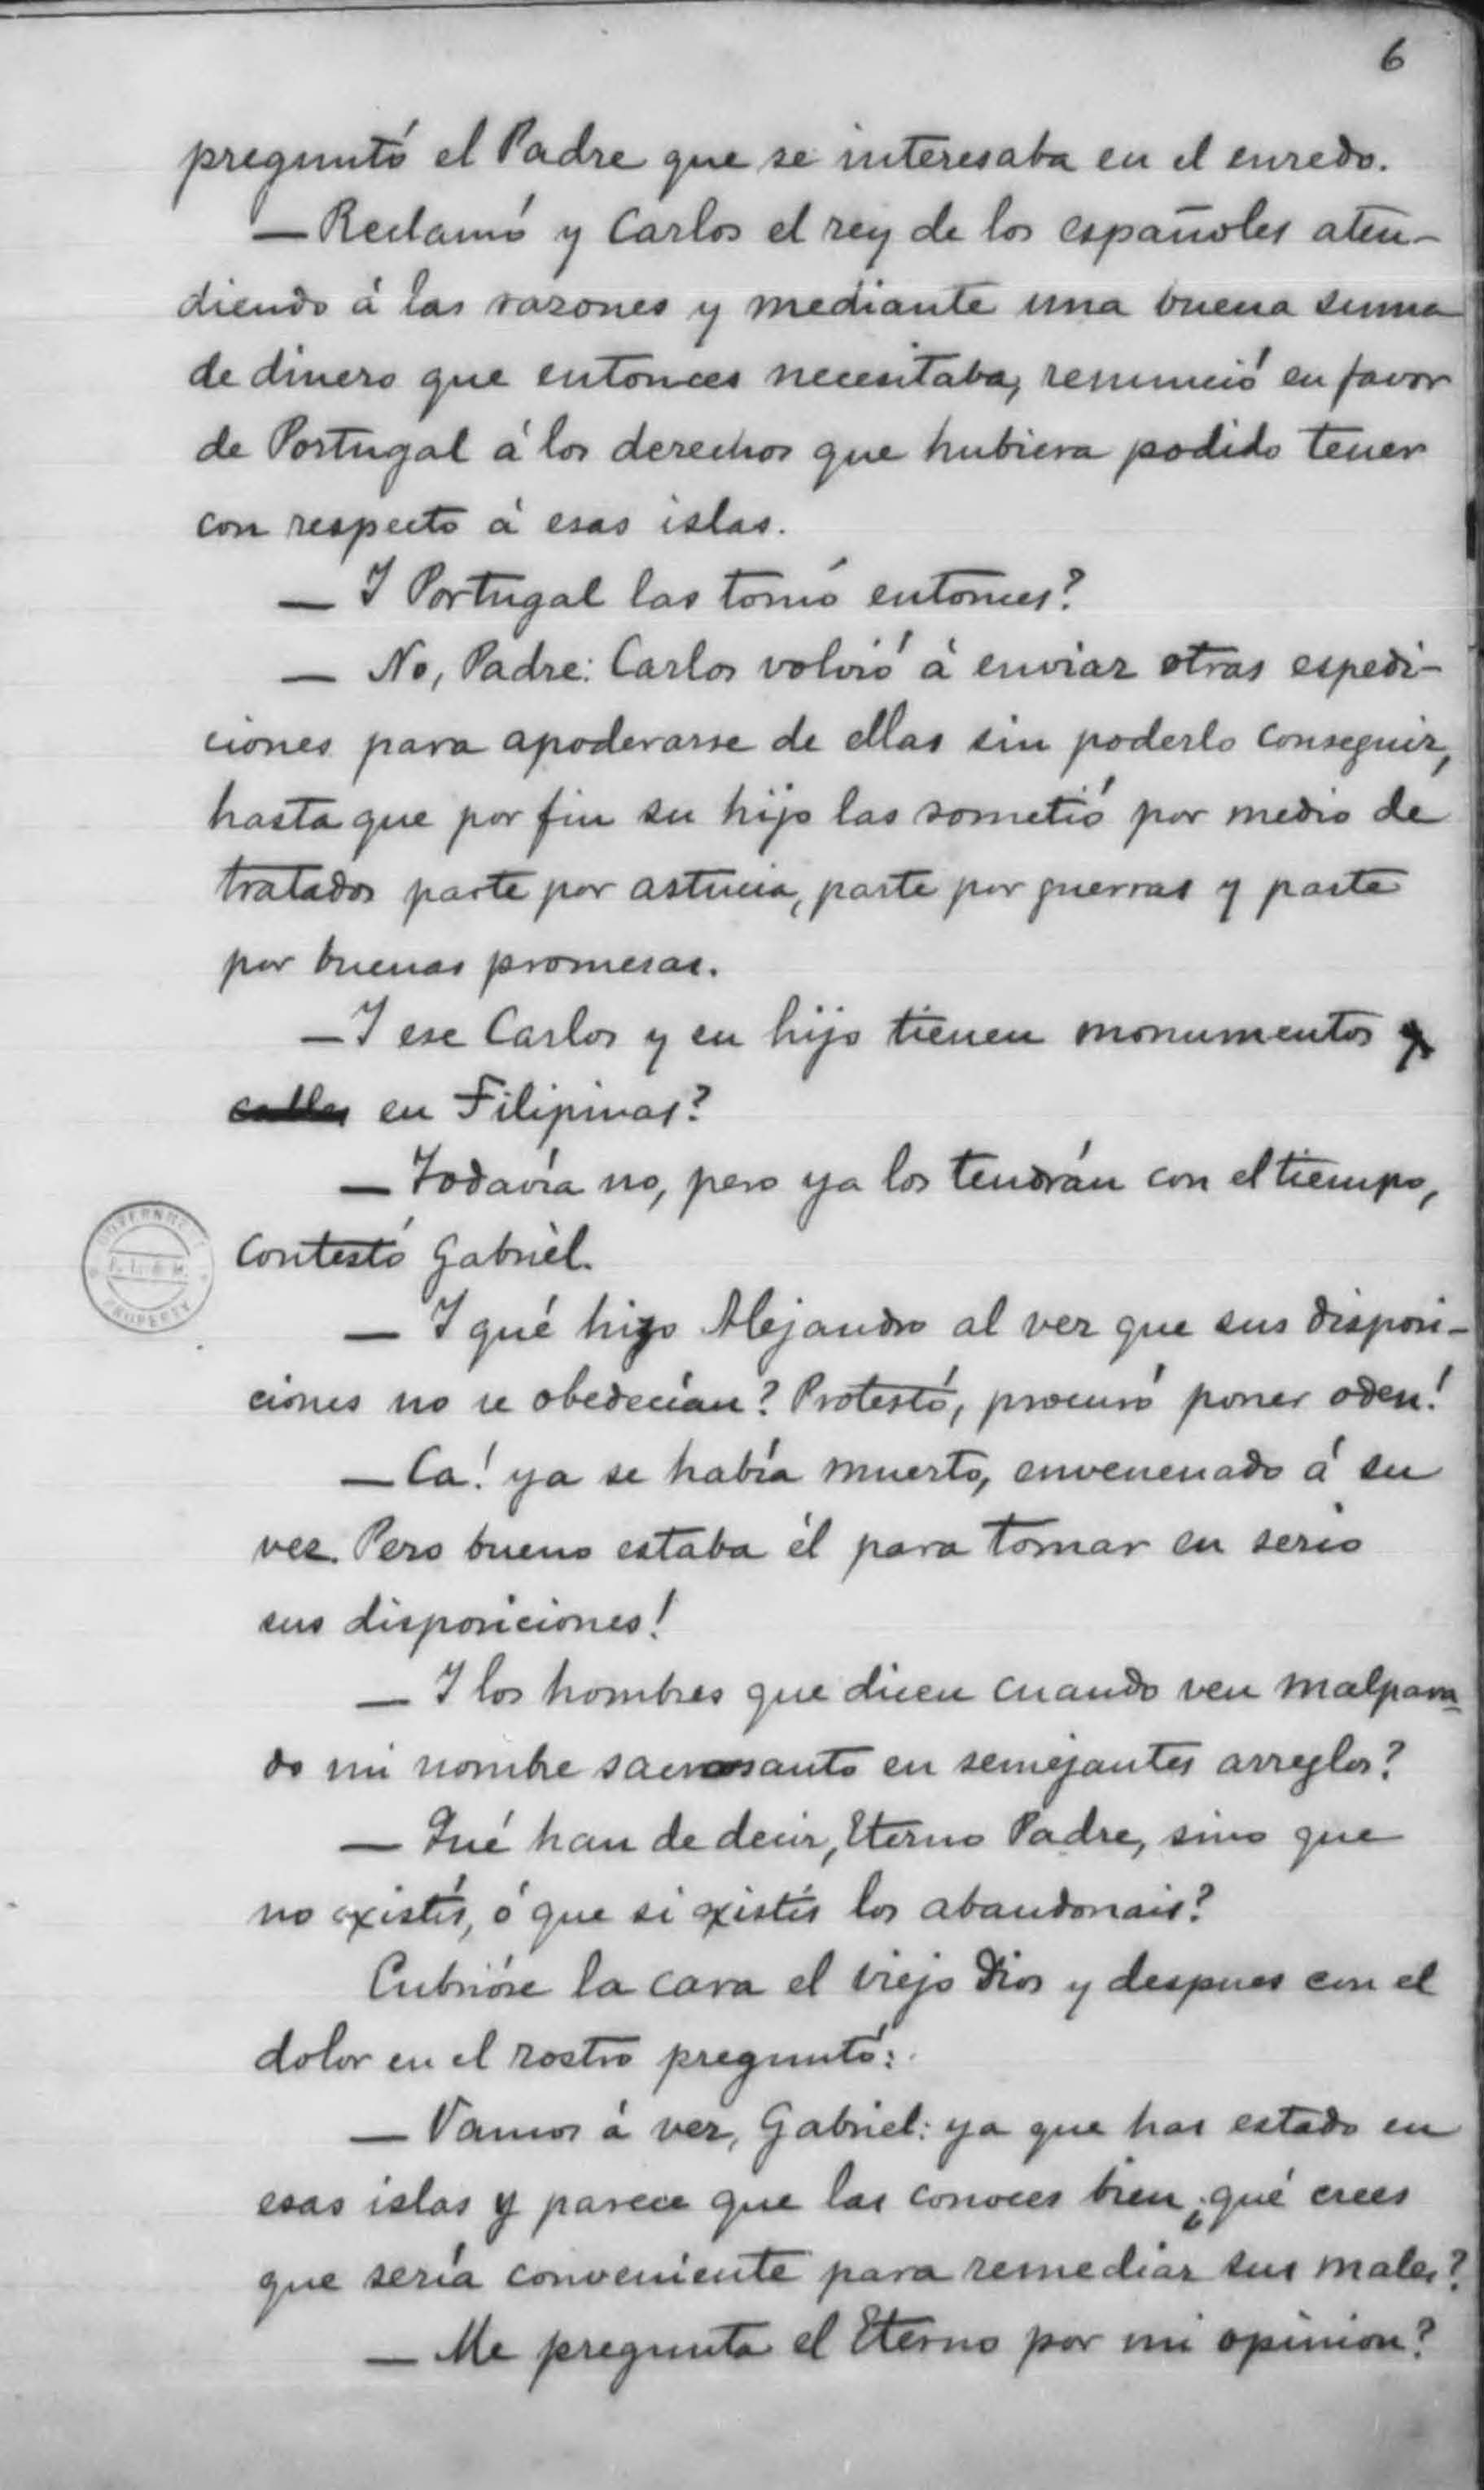 6
preguntó el Padre que se interesaba en el enredo.
— Reclamó y Carlos el rey de los españoles aten-
diendo á las razones y mediante una buena suma
de dinero que entonces necesitaba, renunció en favor
de Portugal á los derechos que hubiera podido tener
con respecto á esas islas.
— I Portugal las tomó entonces?
— No, Padre: Carlos volvió á enviar otras espedi-
ciones para apoderarse de ellas sin poderlo conseguir,
hasta que por fin su hijo las sometió por medio de
tratados parte por astucia, parte por guerras y parte
por buenas promesas.
— I ese Carlos y su hijo tienen monumentos y
calles en Filipinas?
— Todavía no, pero ya los tendrán con el tiempo,
contestó Gabriel.
GOVERNMENT
PROPERTY
— I qué hizo Alejandro al ver que sus disposi-
ciones no se obedecían? Protestó, procuró poner oden!
— Ca! ya se había muerto, envenenado á su
vez. Pero bueno estaba él para tomar en serio
sus disposiciones!
— I los hombres que dicen cuando ven malpara-
do mi nombre sacrosanto en semejantes arreglos?
— Qué han de decir, Eterno Padre, sino que
no existís, ó que si existís los abandonais?
Cubrióse la cara el viejo Dios y despues con el
dolor en el rostro preguntó:
— Vamos á ver, Gabriel: ya que has estado en
esas islas y parece que las conoces bien, ¿qué crees
que sería conveniente para remediar sus males?
— Me pregunta el Eterno por mi opinion?